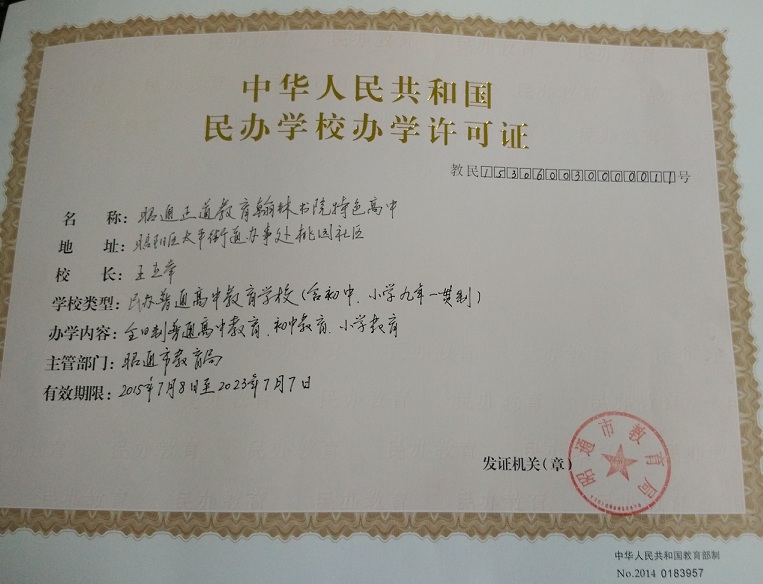 中华人民共和国
民办学校办学许可证
教民153060030000011号
名 称：昭通正道教育翰林书院特色高中
地 址：昭阳区太平街道办事处桃园社区
校 长：王立举
学校类型：民办普通高中教育学校（含初中、小学九年一贯制）
办学内容：全日制普通高中教育、初中教育、小学教育
主管部门：昭通市教育局
有效期限：2015年7月8日至2023年7月7日
发证机关（章）
昭通市教育局
中华人民共和国教育部制
No.2014 0183957